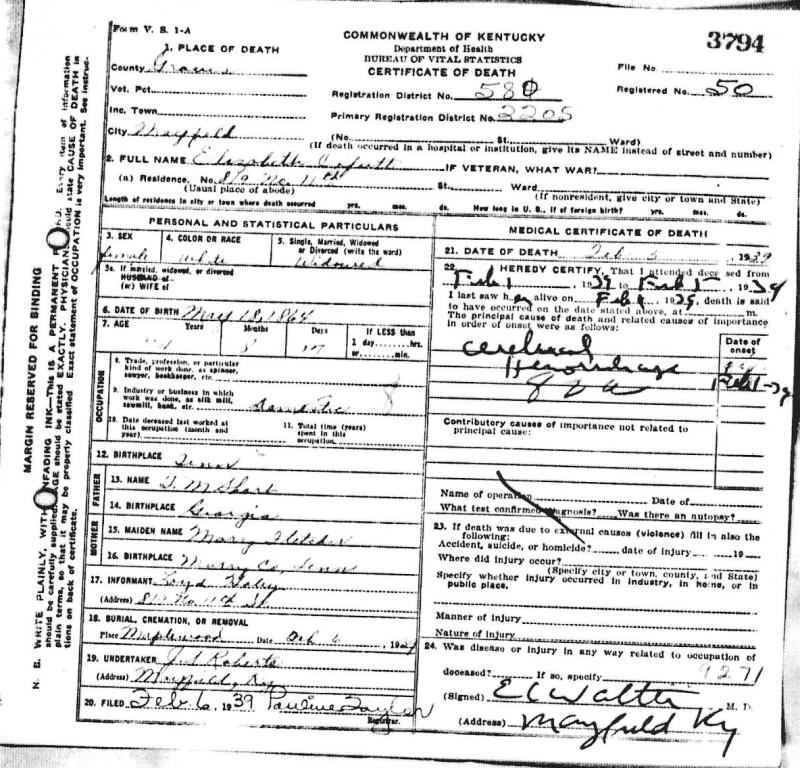 Form V. S. 1-A
COMMONWEALTH OF KENTUCKY
Department of Health
BUREAU OF VITAL STATISTICS
CERTIFICATE OF DEATH
3794
File No
Registered No. 50
1. PLACE OF DEATH
County Graves
Vot. Pct.
Inc. Town
City Mayfield
Registration District No. 580
Primary Registration District No. 2205
(No. St. Ward)
(If death occurred in a hospital or institution, give its NAME instead of street and number)
2. FULL NAME Elizabeth
IF VETERAN, WHAT WAR?
(a) Residence, No. 819 No. 11th St. Ward
(Usual place of abode)
(If nonresident, give city or town and State)
Length of residence in city or town where death occurred yrs. mos. ds. How long in U. S., if of foreign birth? yrs. mos. ds.
PERSONAL AND STATISTICAL PARTICULARS
3. SEX
female
4. COLOR OR RACE
White
5. Single, Married, Widowed
or Divorced (write the word)
Widowed
5a. If married, widowed, or divorced
HUSBAND of
(or) WIFE of
6. DATE OF BIRTH May 18, 1864
7. AGE Years Months Days If LESS than
1 day hrs.
or min.
8
OCCUPATION
8. Trade, profession, or particular
kind of work done, as spinner,
sawyer, bookkeeper, etc.
9. Industry or business in which
work was done, as silk mill,
sawmill, bank, etc. domestic
10. Date deceased last worked at
this occupation (month and
year)
11. Total time (years)
spent in this
occupation.
12. BIRTHPLACE Tenn
FATHER
13. NAME T. M Short
14. BIRTHPLACE Georgia
MOTHER
15. MAIDEN NAME Mary Fletcher
16. BIRTHPLACE Murry Co, Tenn
17. INFORMANT
(Address) No 11th St.
18. BURIAL, CREMATION, OR REMOVAL
Place Maplewood Date Feb 6, 19
19. UNDERTAKER Roberts
(Address) Mayfield, Ky
20. FILED Feb 6, 1939 Pauline Taylor
Registrar.
MEDICAL CERTIFICATE OF DEATH
21. DATE OF DEATH Feb 5 1939
22. I HEREBY CERTIFY, That I attended deceased from
Feb 1, 1939 to Feb 5, 1939
I last saw her alive on Feb 1939, death is said
to have occurred on the date stated above, at m.
The principal cause of death and related causes of importance
in order of onset were as follows:
Date of
onset
Cerebral
Hemorrhage
Feb 1-39
82a
Contributory causes of importance not related to
principal cause:
Name of operation Date of
What test confirmed diagnosis? Was there an autopsy?
23. If death was due to external causes (violence) fill in also the
following:
Accident, suicide, or homicide? date of injury 19
Where did injury occur?
(Specify city or town, county, and State)
Specify whether injury occurred in industry, in home, or in
public place.
Manner of injury
Nature of injury
24. Was disease or injury in any way related to occupation of
deceased? If so, specify 9271
(Signed) E C Walter M. D.
(Address) Mayfield Ky
MARGIN RESERVED FOR BINDING
N. B. WRITE PLAINLY, WITH UNFADING INK—THIS IS A PERMANENT Every item of information
should be carefully supplied. AGE should be stated EXACTLY. PHYSICIANS should state CAUSE OF DEATH in
plain terms, so that it may be properly classified. Exact statement of OCCUPATION is very important. See instruc-
tions on back of certificate.